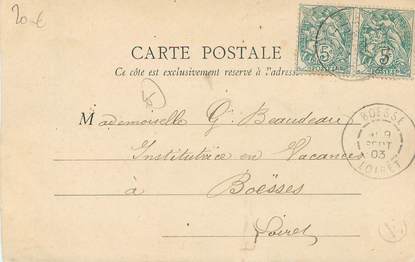 20 €
CARTE POSTALE
Ce côté est exclusivement reservé à l'adresse
5
5
Mademoiselle G. Beaudeau
Institutrice en Vacances
à Boësses
Loiret
BOESSE
9
SEPT
03
LOIRET